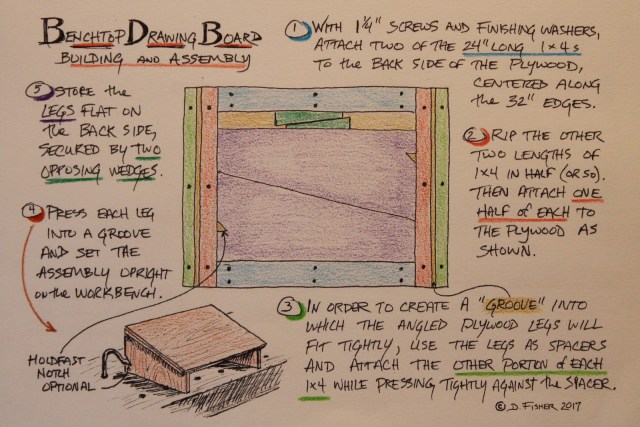 Benchtop Drawing Board
Building and Assembly
① With 1¼" screws and finishing washers,
attach two of the 24" long 1x4s
to the back side of the plywood,
centered along
the 32" edges.
② Rip the other
two lengths of
1x4 in half (or so).
Then attach one
half of each to
the plywood as
shown.
③ In order to create a "groove" into
which the angled plywood legs will
fit tightly, use the legs as spacers
and attach the other portion of each
1x4 while pressing tightly against the spacer.
④ Press each leg
into a groove
and set the
assembly upright
on the workbench.
⑤ Store the
legs flat on
the back side,
secured by two
opposing wedges.
Holdfast
notch
optional
© D. Fisher 2017